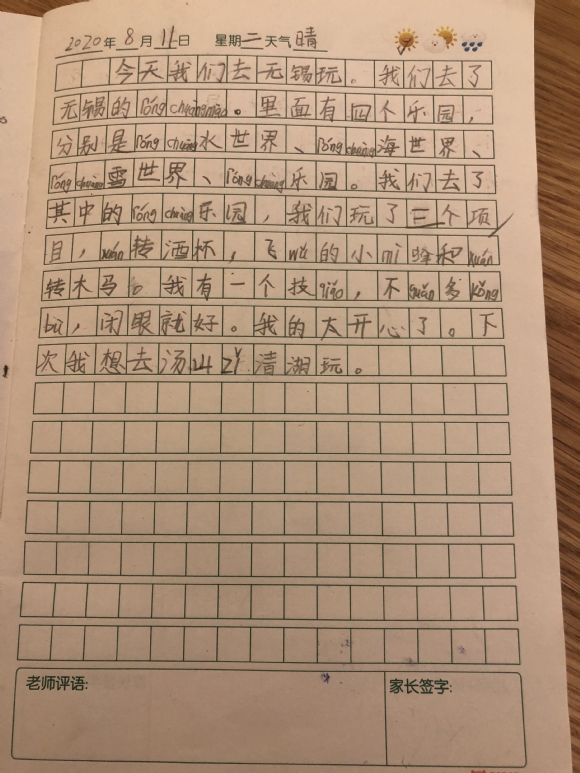 2020年8月11日 星期二天气晴
今天我们去无锡玩。我们去了
无锡的róng chuāng mào。里面有四个乐园，
分别是róng chuàng水世界、róng chuang海世界、
róng chuàng雪世界、róng chuàng乐园。我们去了
其中的róng chuàng乐园，我们玩了三个项
目，xuán转酒杯，飞wǔ的小mì蜂和xuán
转木马。我有一个技qiǎo，不guǎn多kǒng
bù，闭眼就好。我的太开心了。下
次我想去汤山zǐ清湖玩。
老师评语:
家长签字: